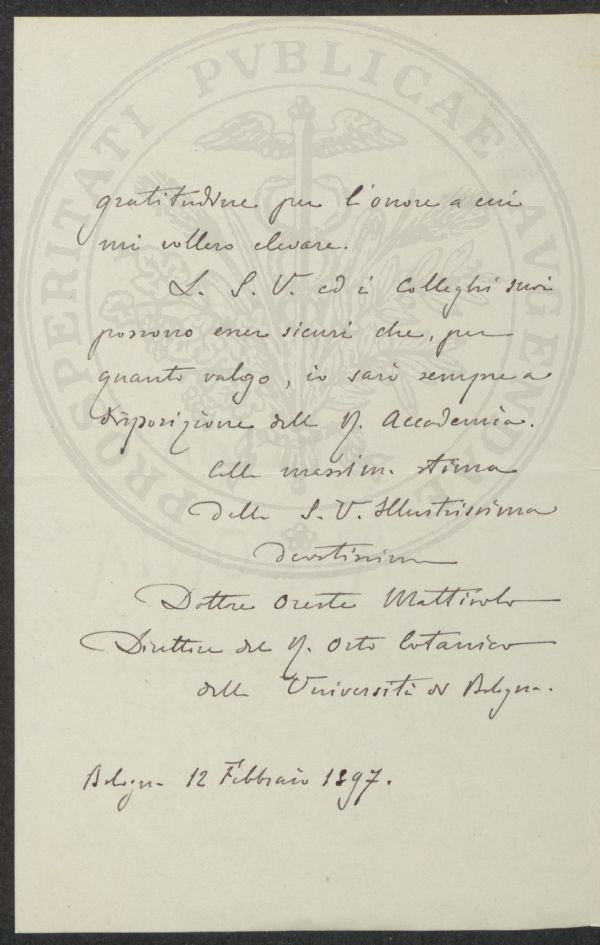 PROSPERITATI PVBLICAE AVGENDAE
gratitudine per l'onore a cui
mi vollero elevare.
L. S. V. ed i Colleghi suoi
possono esser sicuri che, per
quanto valgo, io sarò sempre a
disposizione della R. Accademia.
Colla massima stima
Della S. V. Illustrissima
devotissimo
Dottore Oreste Mattirolo
Direttore del R. Orto botanico
della Università di Bologna.
Bologna 12 Febbraio 1897.